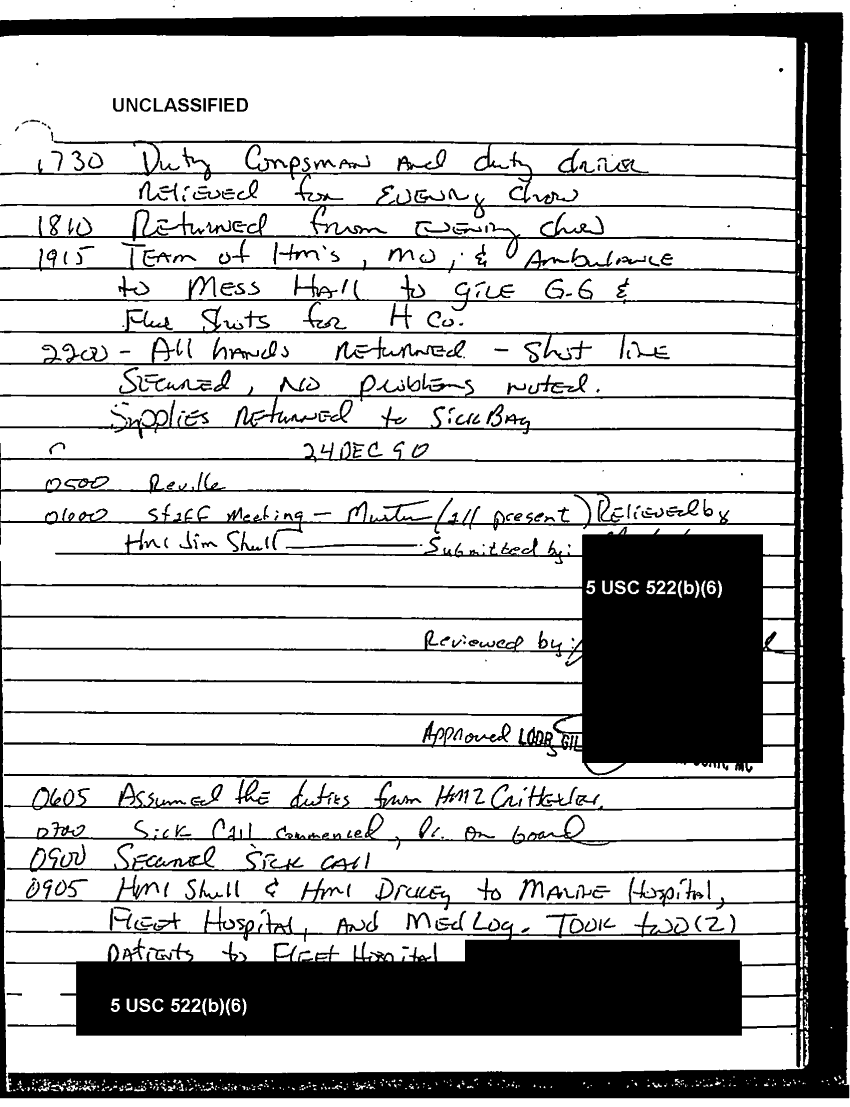 UNCLASSIFIED
1730 Duty Corpsman and duty driver
relieved for Evening Chow
1810 Returned from Evening chow
1915 Team of HM's, MO, & Ambulance
to Mess Hall to give G-G &
Flu Shots for H Co.
2200 - All hands returned - Shot line
Secured, no problems noted.
Supplies returned to SickBay
24 DEC 90
0500 Reville
0600 Staff Meeting - Muster (all present) Relieved by
HM1 Jim Shull Submitted by:
5 USC 522(b)(6)
Reviewed by:
Approved LCDR GIL
0605 Assumed the duties from HM2
0700 Sick Call commenced, Dr. on board
0900 Secured Sick call
0905 HM1 Shull & HM1 Dickey to Marine Hospital,
Fleet Hospital, and MedLog. Took two (2)
patients to Fleet Hospital
5 USC 522(b)(6)